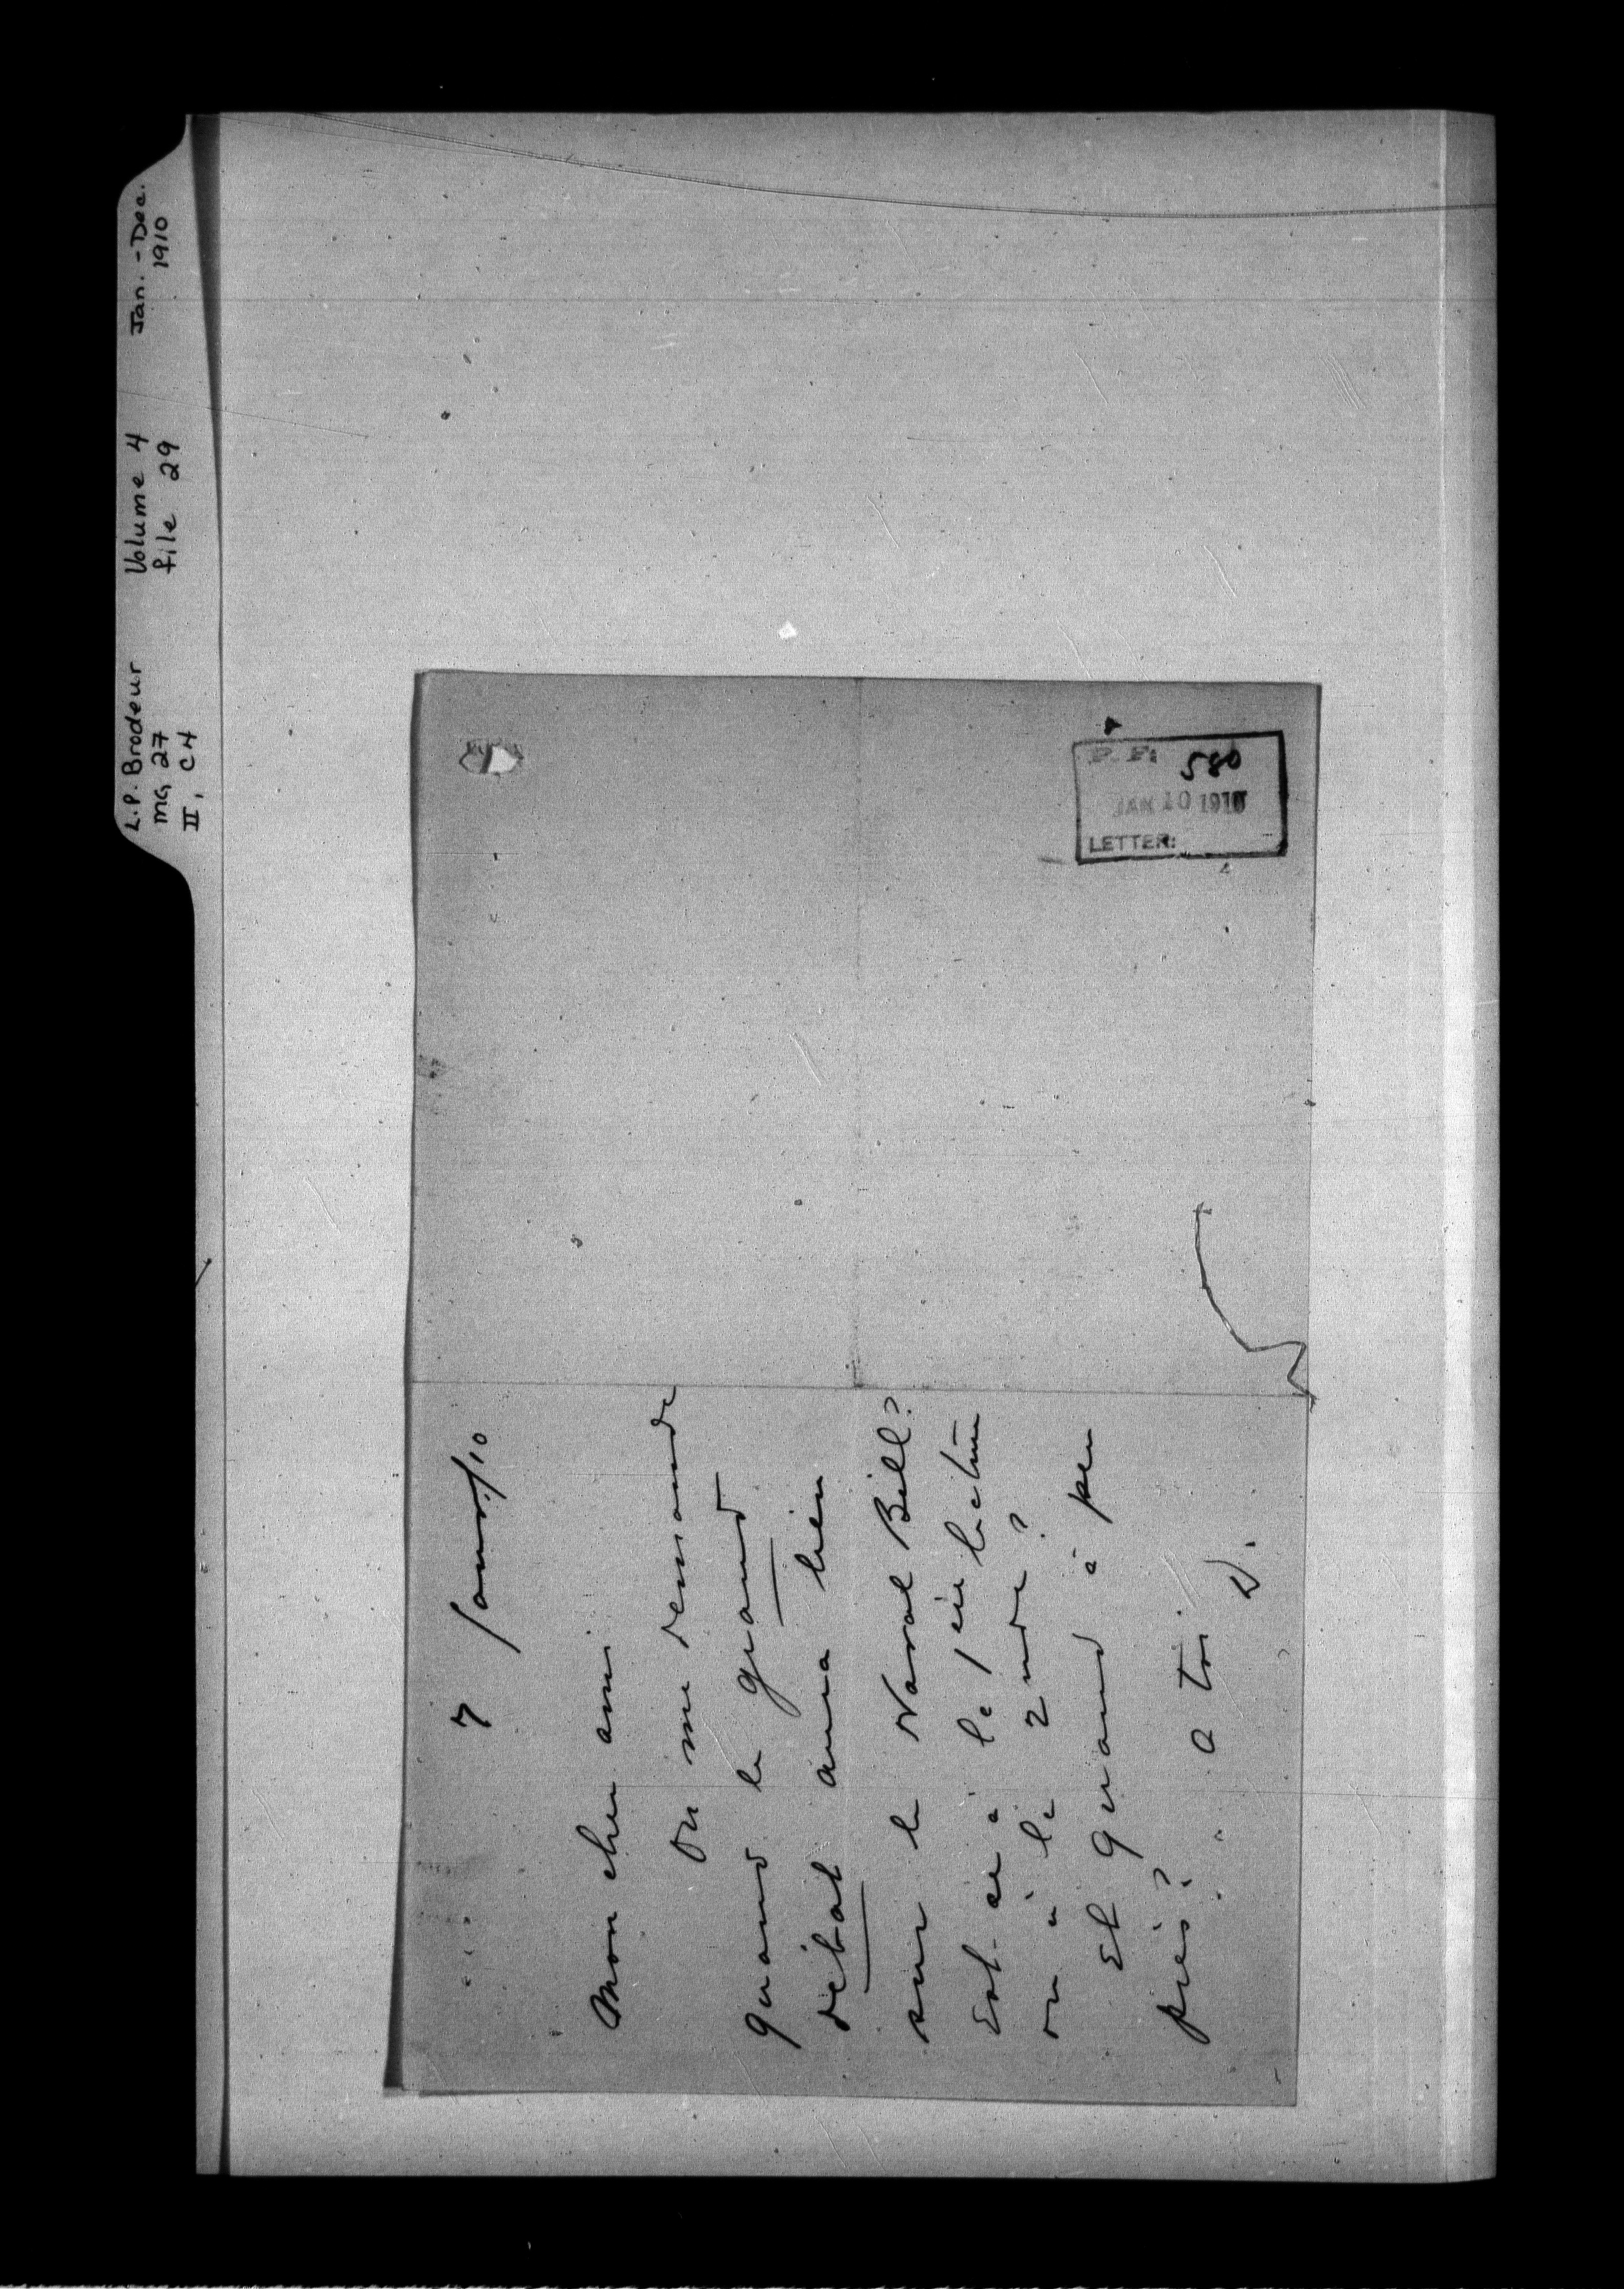 L.P. Brodeur
MG 27
II, C4
Volume 4
file 29
Jan. - Dec.
1910
7 Janv/10
Mon cher ami
On me demande
quand le grand
débat aura lieu
sur le Naval Bill?
Est-ce à la 1ère lecture
ou à la 2nde?
Et quand à peu
près?
a toi.
D.
P. F: 580
JAN 10 1910
LETTER: